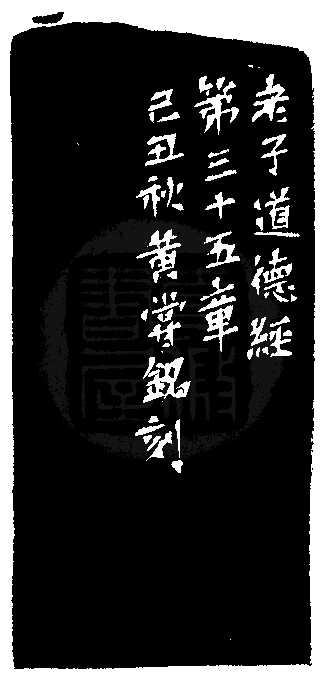 老子道德經
第三十五章
己丑秋黃嘗銘刻